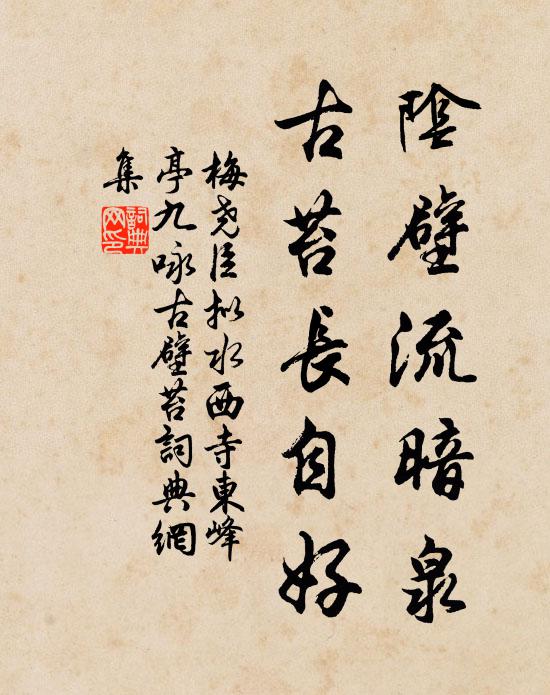 陰壁流暗泉
古苔長自好
梅堯臣拟水西寺東峰
亭九咏古壁苔詞典網
集
詞典网印